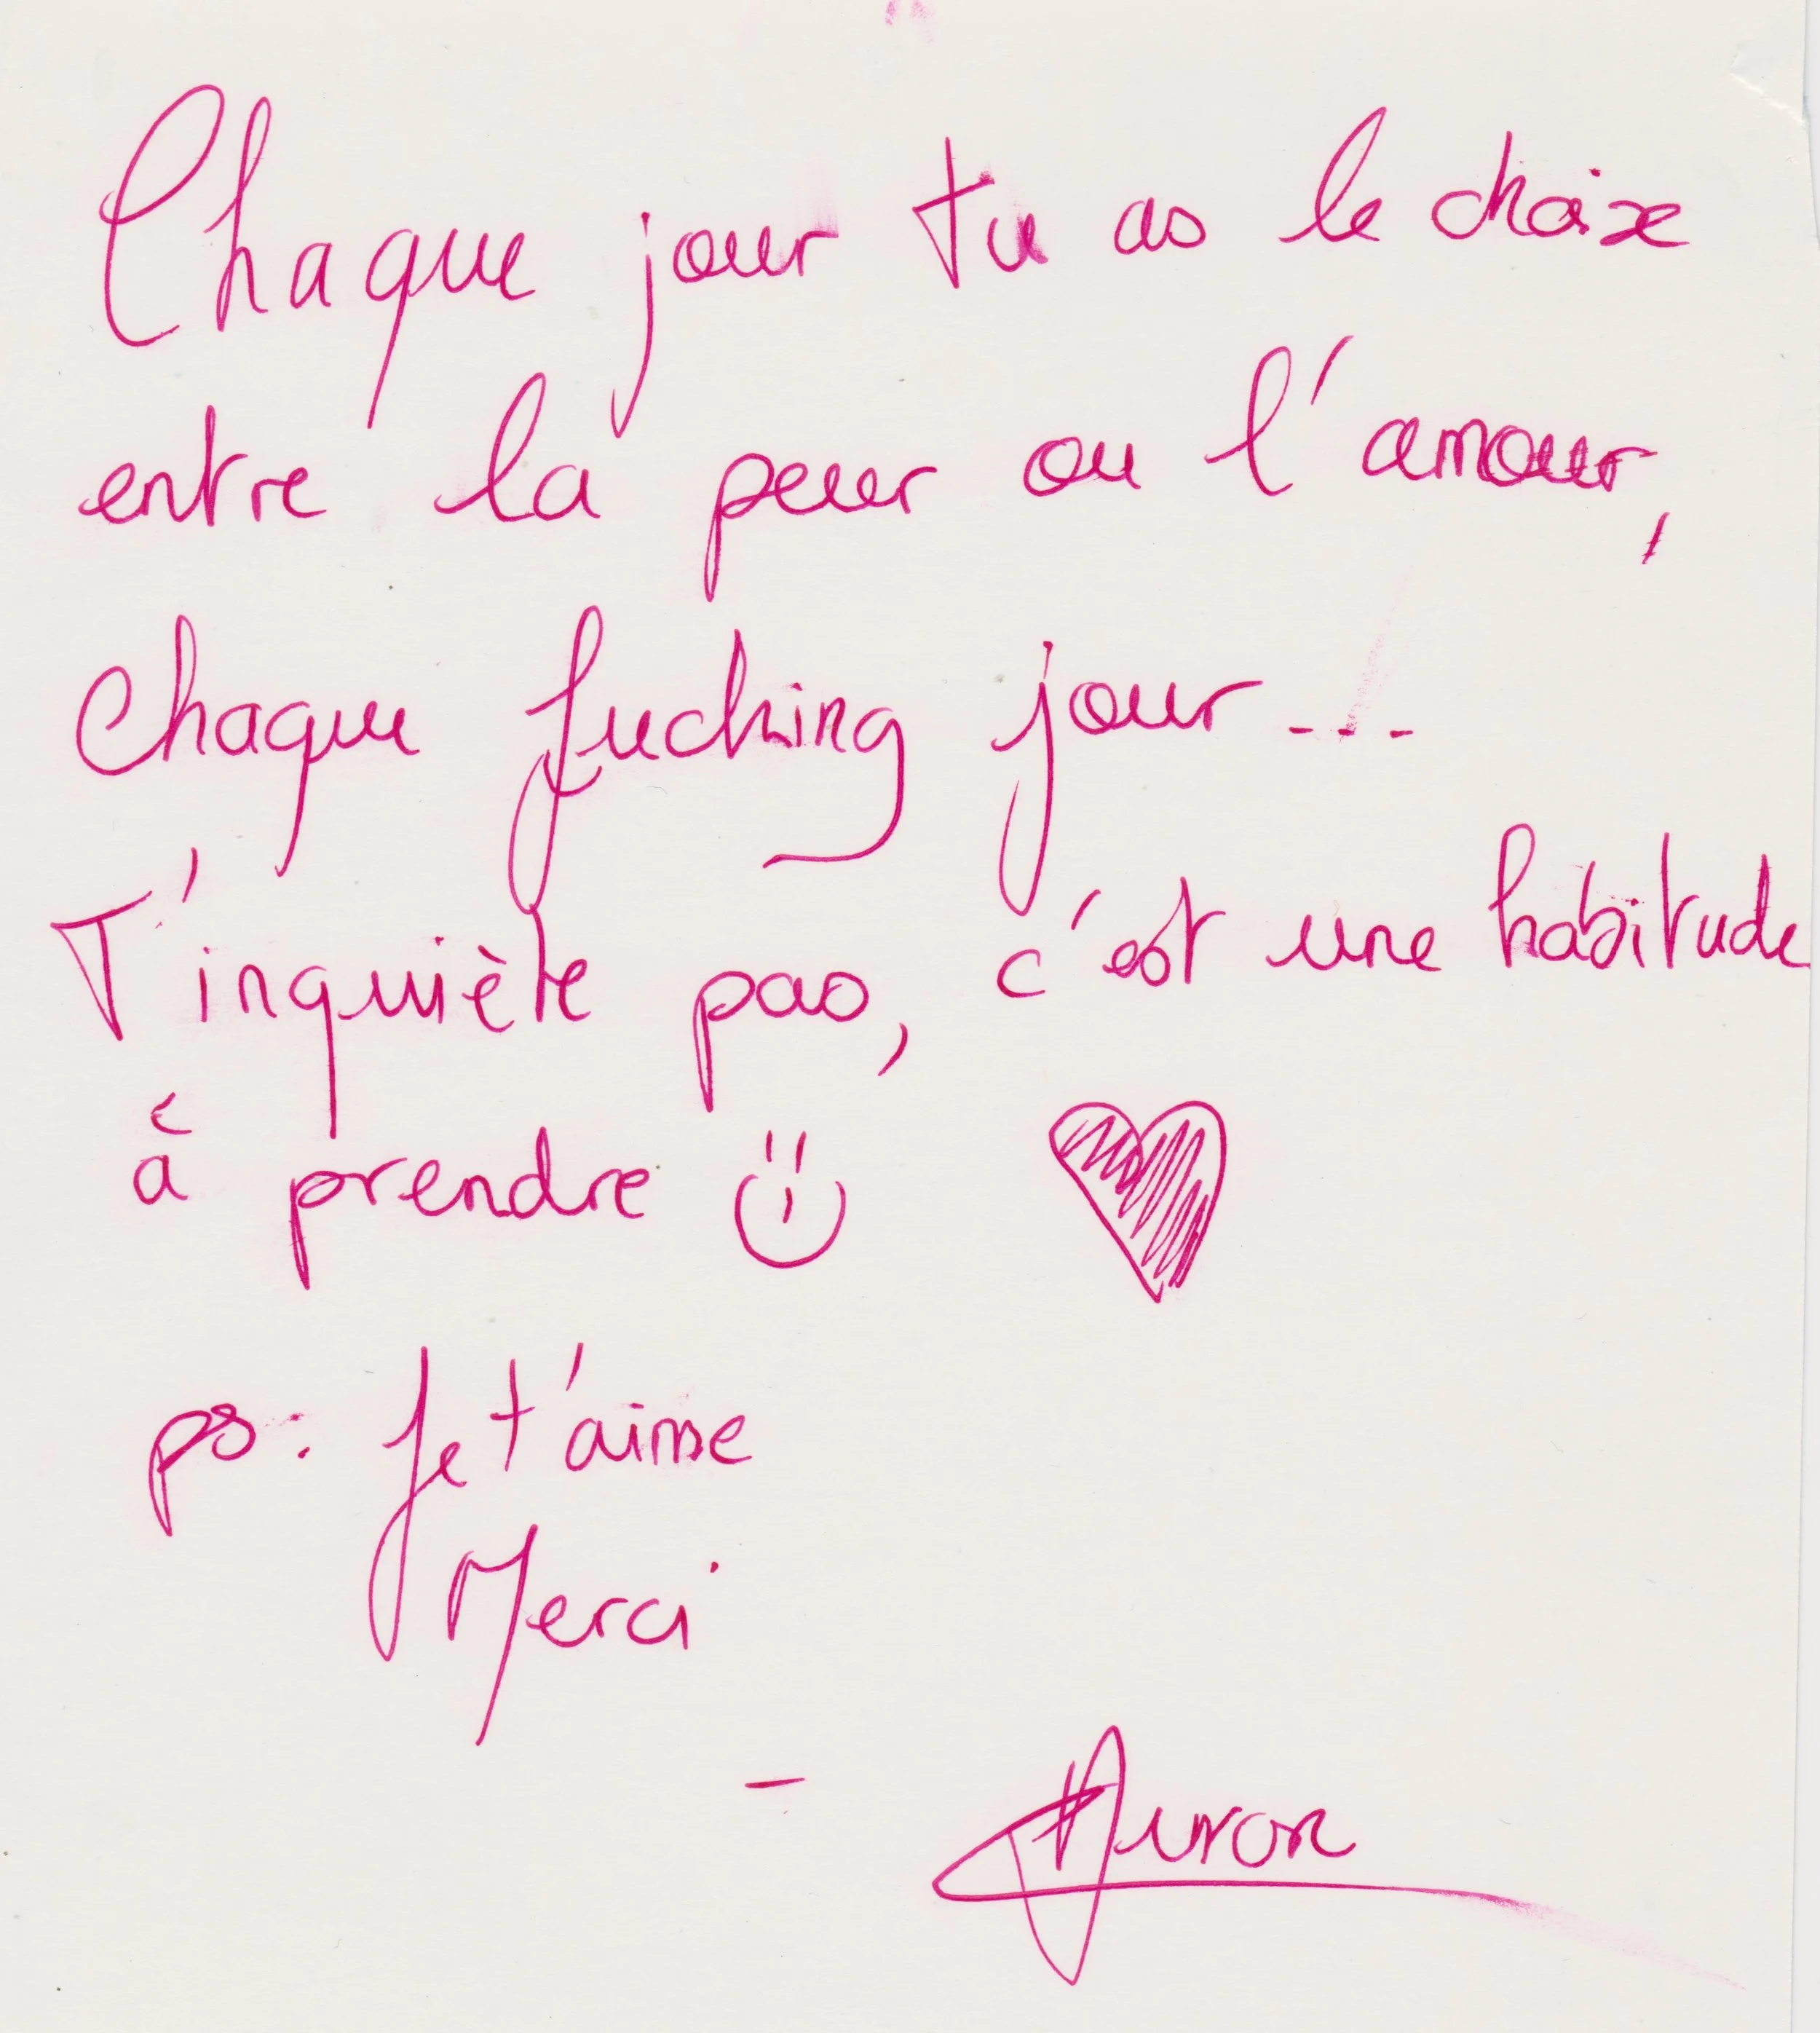 Chaque jour tu as le choix
entre la peur ou l'amour,
chaque fucking jour...
T'inquiète pas, c'est une habitude
à prendre
ps: Je t'aime
Merci
- Auron